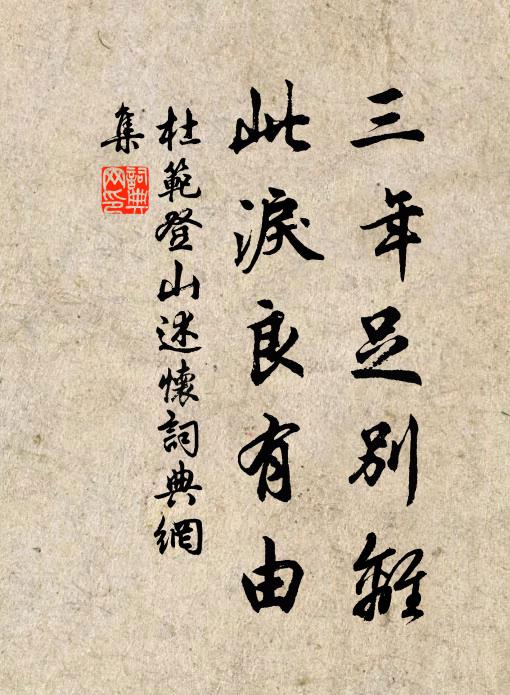 三年足別離
此淚良有由
杜範登山述懷詞典網
集
詞典
网印